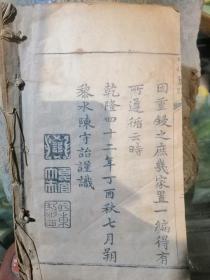 因重鋟之庶幾家置一編得有
所遵循云時
乾隆四十二年丁酉秋七月朔
黎水陳守詒謹識